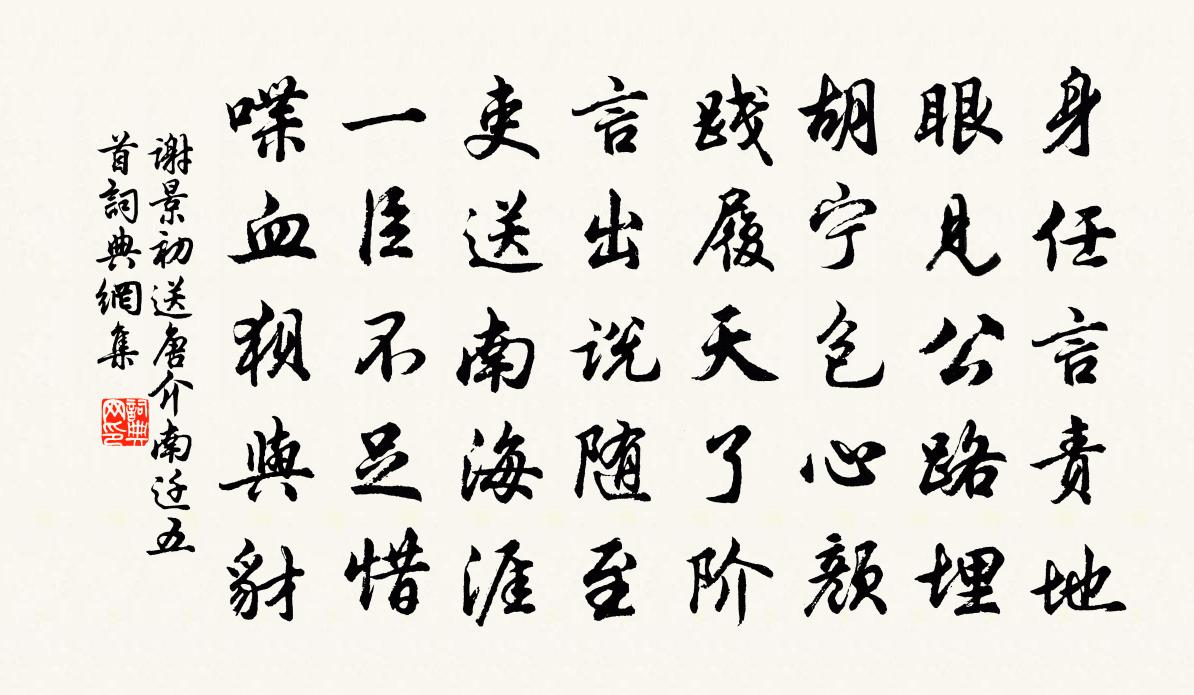 身任言责地
眼见公路埋
胡宁包心颜
践履天了阶
言出说随至
吏送南海涯
一臣不足惜
喋血狈與豺
谢景初送唐介南迁五
首詞典網集
詞典网印